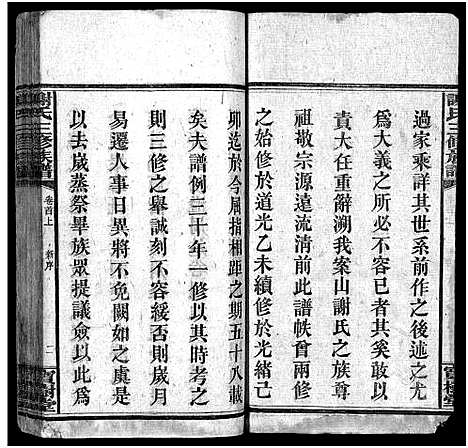 過家乘詳其世系前作之後述之尤
爲大義之所關然而欲序族譜者貴
責大任重解溯我案山謝氏之族尊
祖敬宗源遠流清前此譜帙曾兩修
之始修於道光乙未續修於光緒己
卯迄於今風指相距之期五十八載
矣夫譜例三十年一修以其時考之
則三修之舉誠刻不容緩否則歲月
易遷人事日異將不免闕如之虞是
以去歲蒸祭畢族眾提議僉以此爲
謝氏三修族譜
卷首上
新序
二
寶樹堂